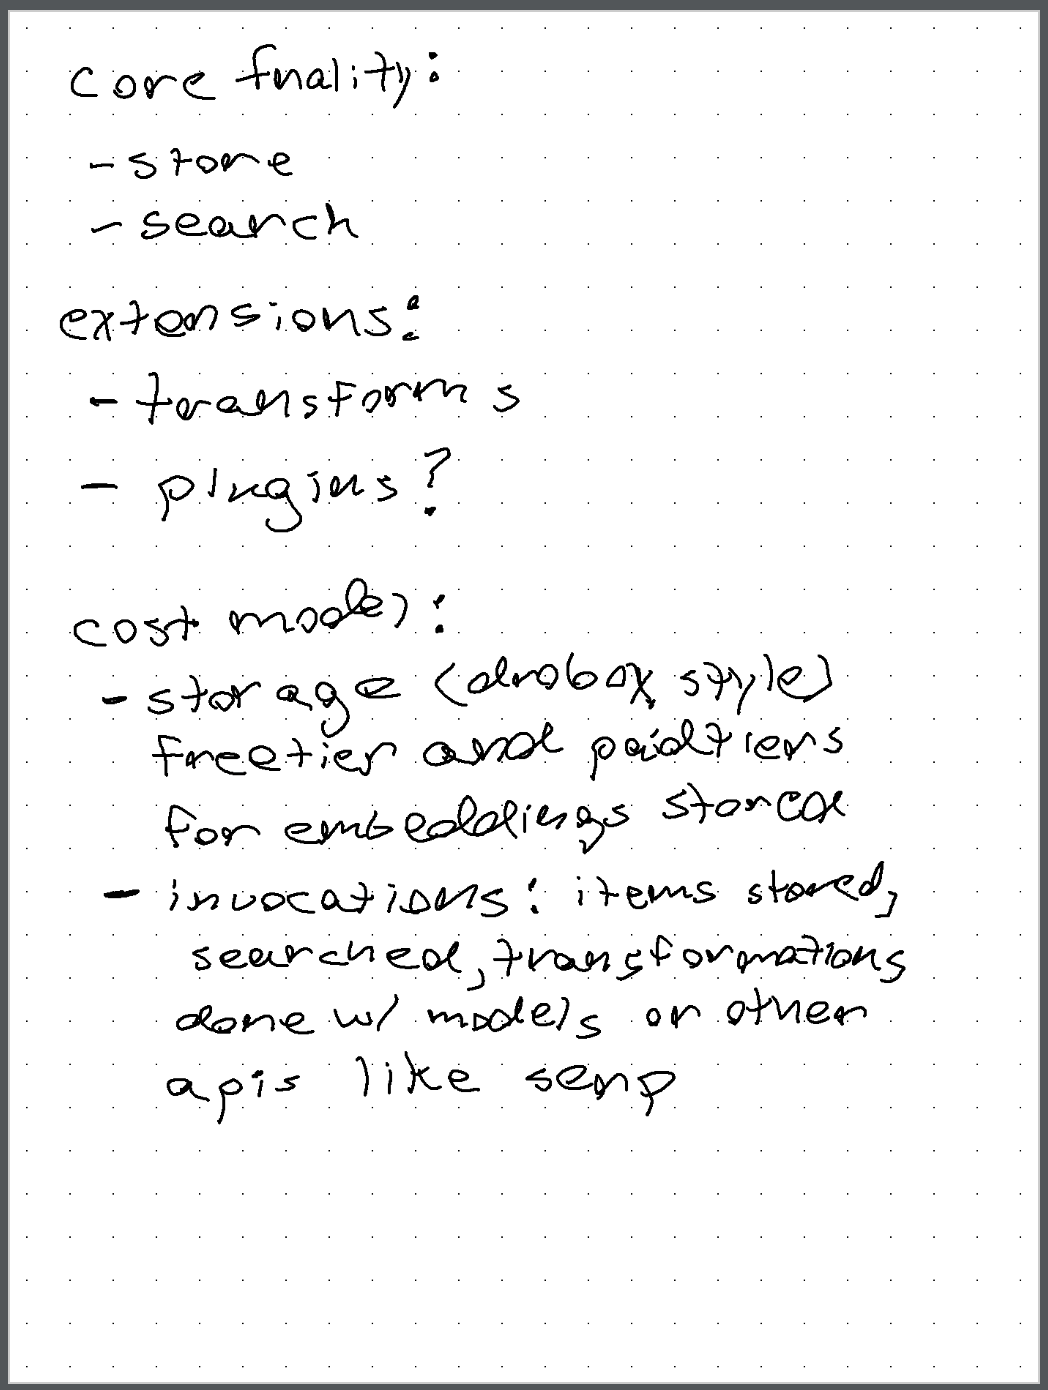 core fnality:
- store
- search
extensions:
- transforms
- plugins?
cost model:
- storage (drobox style)
freetier and paid tiers
for embeddings stored
- invocations: items stored,
searched, transformations
done w/ models or other
apis like serp